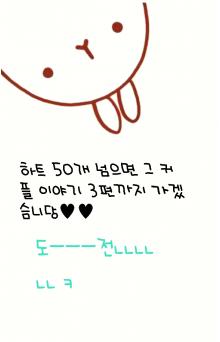 하트 50개 넘으면 그 커
플 이야기 3편까지 가겠
습니당♥♥
도ㅡㅡㅡ전ㄴㄴㄴㄴ
ㄴㄴ ㅋ